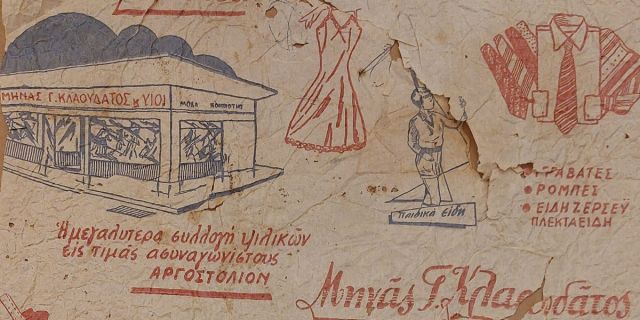 ΜΗΝΑΣ Γ. ΚΛΑΟΥΔΑΤΟΣ & ΥΙΟΙ
Ἡ μεγαλυτέρα συλλογή ψιλικῶν
εἰς τιμάς ἀσυναγωνίστους
ΑΡΓΟΣΤΟΛΙΟΝ
παιδικά εἴδη
• ΓΡΑΒΑΤΕΣ
• ΡΟΜΠΕΣ
• ΕΙΔΗ ΖΕΡΣΕΫ
ΠΛΕΚΤΑ ΕΙΔΗ
Μηνᾶς Γ. Κλαουδάτος